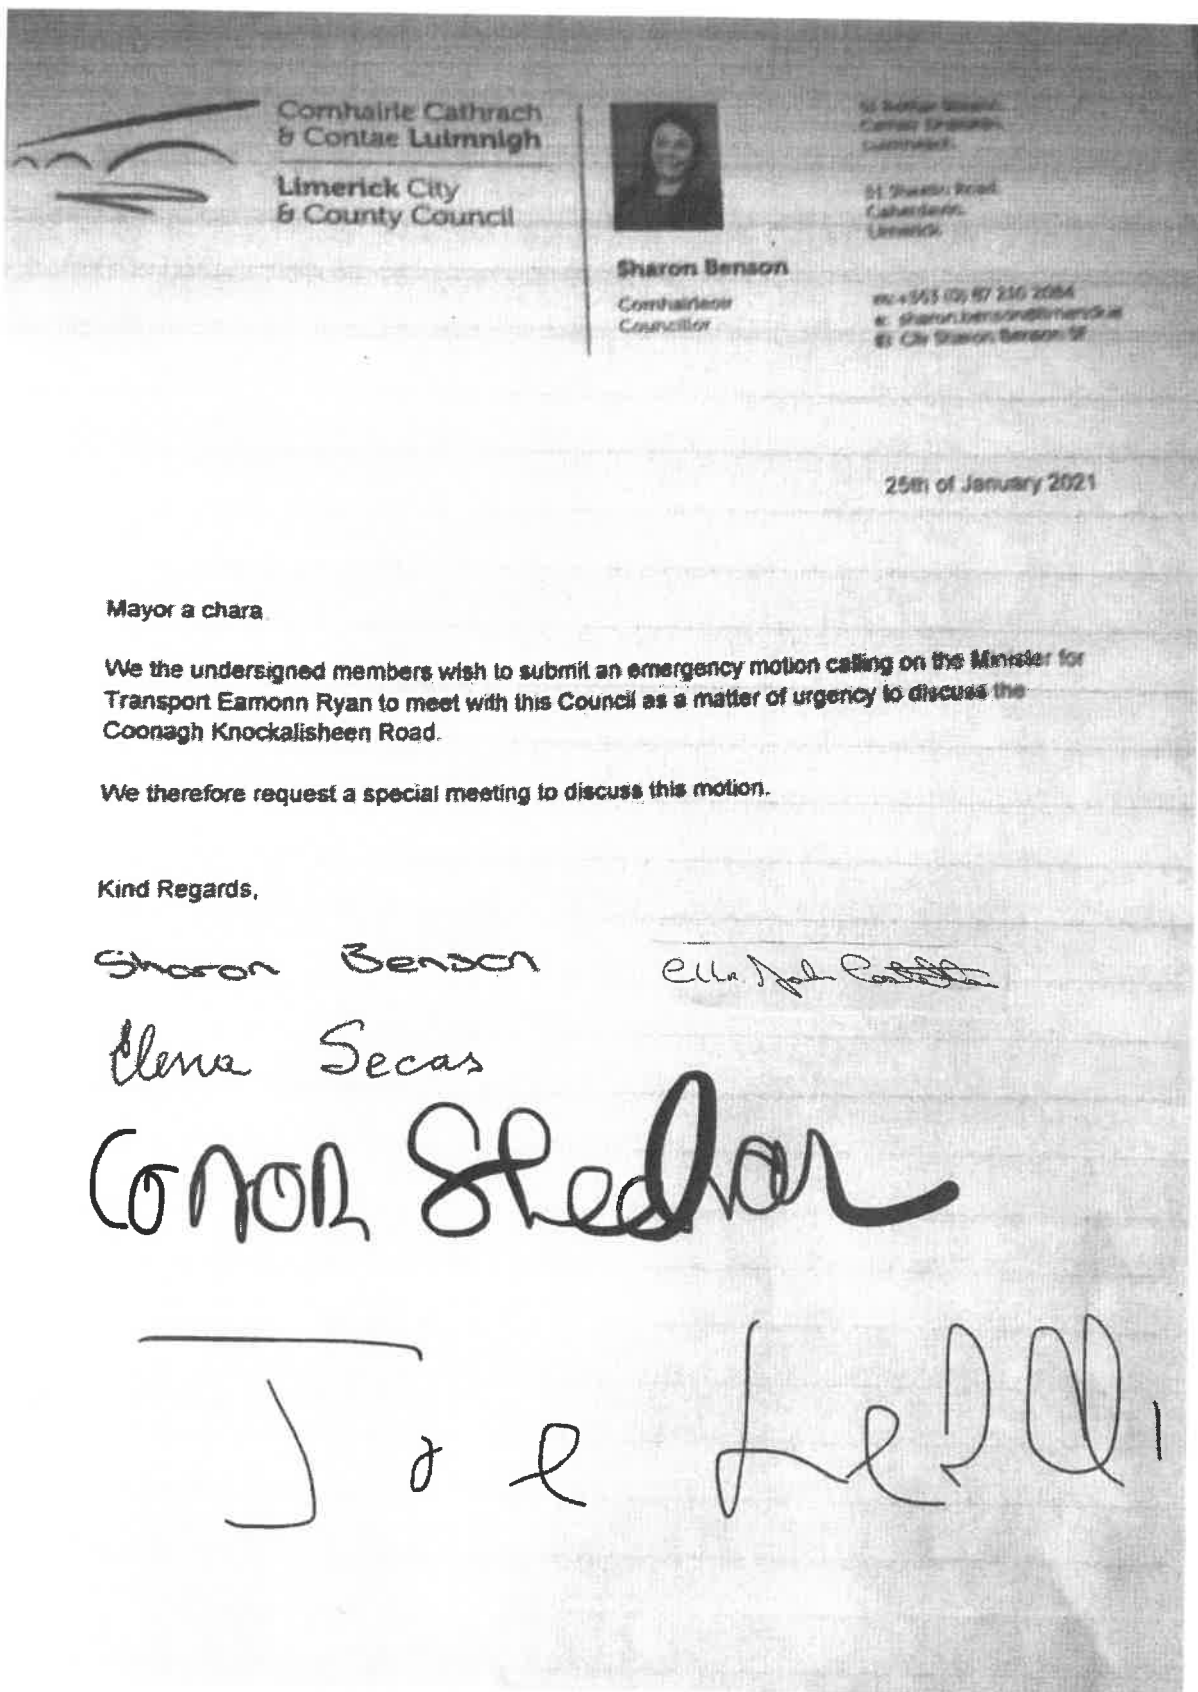 Comhairle Cathrach
& Contae Luimnigh
Limerick City
& County Council
Sharon Benson
Comhairleoir
Councillor
Road
Caherdavin,
Limerick
m: +353 (0) 87 210 2084
e: sharon.benson@limerick.ie
Cllr Sharon Benson SF
25th of January 2021
Mayor a chara
We the undersigned members wish to submit an emergency motion calling on the Minister for
Transport Eamonn Ryan to meet with this Council as a matter of urgency to discuss the
Coonagh Knockalisheen Road.
We therefore request a special meeting to discuss this motion.
Kind Regards,
Sharon Benson
Cllr. John Costelloe
Elena Secas
Conor Sheehan
Joe